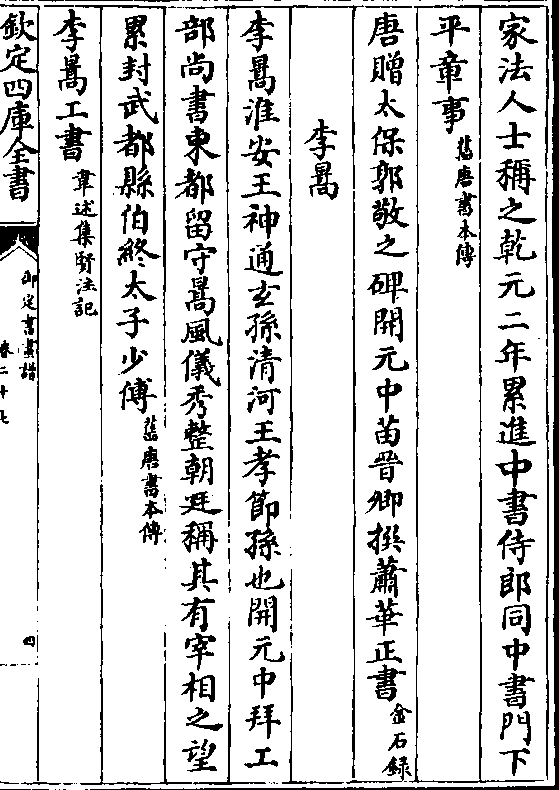 家法人士稱之乾元二年累進中書侍郎同中書門下
平章事舊唐書本傳
唐贈太保郭敬之碑開元中苗晉卿撰蕭華正書金石錄
李暠
李暠淮安王神通玄孫清河王孝節孫也開元中拜工
部尚書東都留守暠風儀秀整朝廷稱其有宰相之望
累封武都縣伯終太子少傅舊唐書本傳
李暠工書韋述集賢注記
欽定四庫全書
御定書畫譜
卷二十七
四